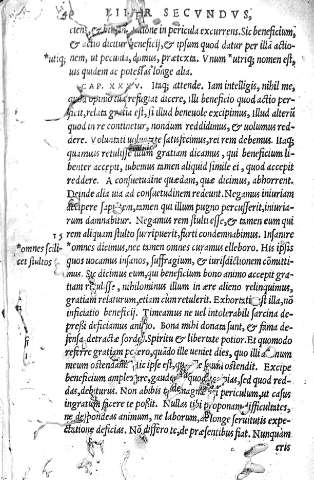 LIBER SECVNDVS,
cient, & in pericula excurrens. Sic beneficium,
& actio dicitur beneficij, & ipsum quod datur per illã actio-
*utriq; nem, ut pecunia, domus, prætexta. Vnum *utriq; nomen est,
uis quidem ac potestas longe alia.
CAP. XXXV. Itaq; attende. Iam intelligis, nihil me,
quod opinio tua refugiat dicere, illi beneficio quod actio perf-
icit, relata gratia est, si illud beneuole excipimus, illud alterũ
quod in re continetur, nondum reddidimus, & uolumus redd-
ere. Voluntati uoluntate satisfecimus, rei rem debemus. Itaq;
quamuis retulisse illum gratiam dicamus, qui beneficium li-
benter accepit, iubemus tamen aliquid simile ei, quod accepit
reddere. A consuetudine quædam, quæ dicimus, abhorrent.
Deinde alia uia ad consuetudinem redeunt. Negamus iniuriam
accipere sapientem, tamen qui illum pugno percusserit, iniuria-
rum damnabitur. Negamus rem stulti esse, & tamen eum qui
15 rem aliquam stulto surripuerit, furti condemnabimus. Insanire
*omnes scili- *omnes dicimus, nec tamen omnes curamus elleboro. His ipsis
cet stultos quos uocamus insanos, suffragium, & iurisdictionem cõmitti-
mus. Sic dicimus eum, qui beneficium bono animo accepit gratiam
retulisse, nihilominus illum in ære alieno relinquimus,
gratiam relaturum, etiam cum retulerit. Exhortatio est illa, nõ
inficiatio beneficij. Timeamus ne uel intolerabili sarcina de-
pressi deficiamus animo. Bona mihi donata sunt, & fama de-
fensa, detractæ sordes. Spiritus & libertate potior. Et quomodo
referre gratiam potero, quãdo ille ueniet dies, quo illi animum
meum ostendam? Hic ipse est, quo suum ostendit. Excipe
beneficium amplexare, gaude, quod accipias, sed quod red-
das, debiturus. Non adibis tam magnæ rei periculum, ut casus
ingratum facere te possit. Nullas tibi proponam difficultates,
ne despondeas animum, ne laborum, ac longæ seruitutis expe-
ctatione deficias. Nõ differo te, de præsentibus fiat. Nunquam
eris